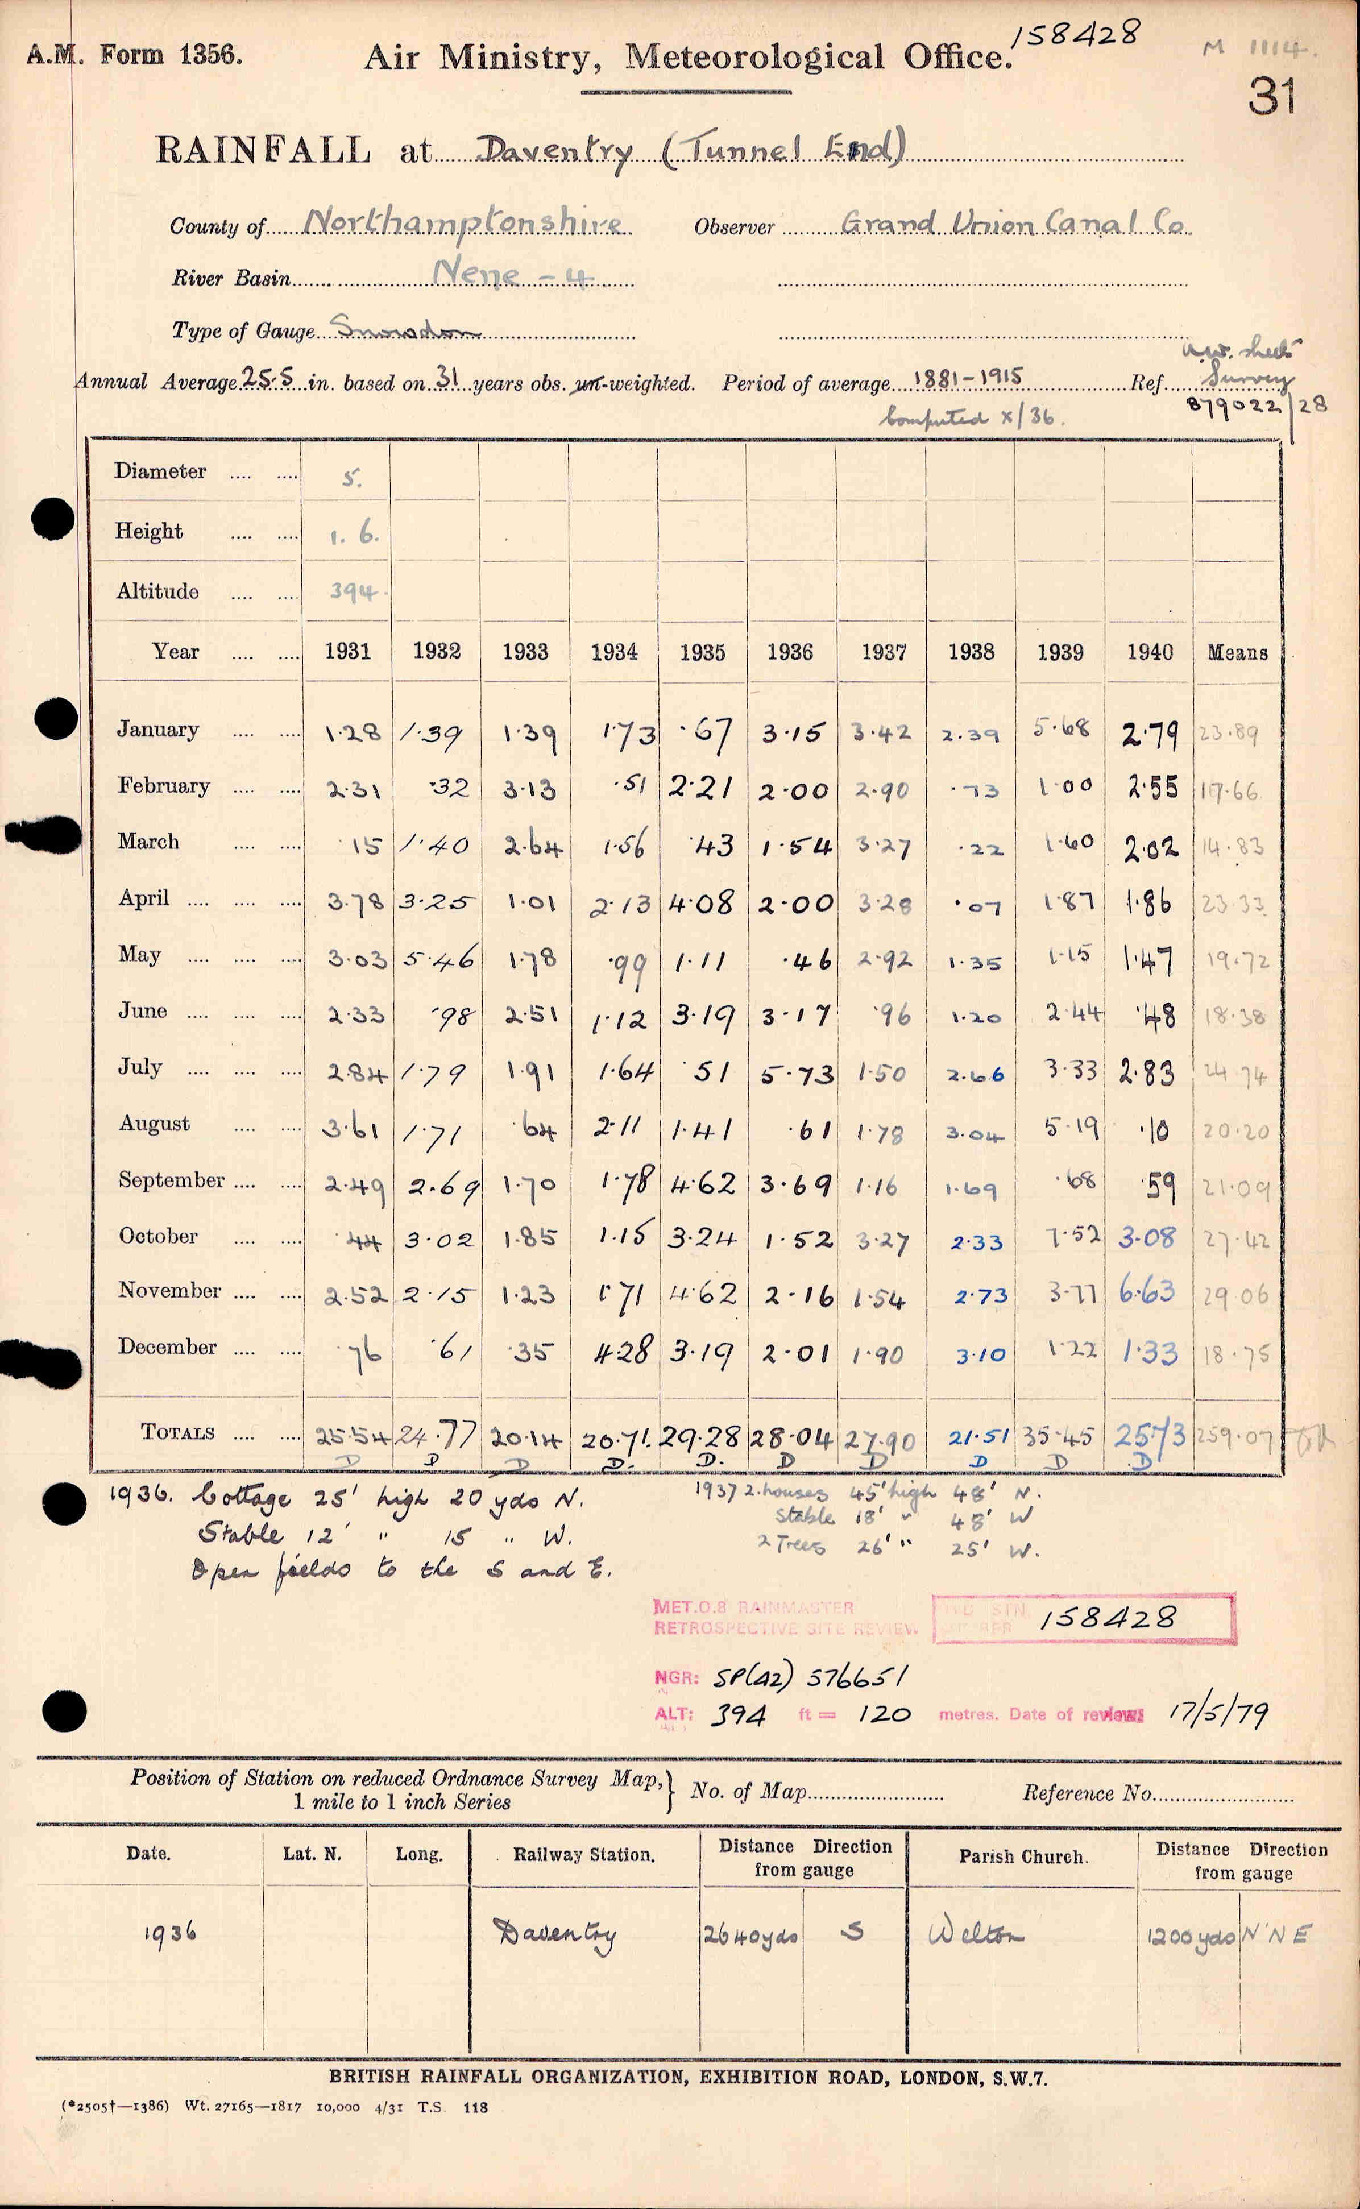 158428
M 1114.
A.M. Form 1356.
Air Ministry, Meteorological Office.
31
RAINFALL at Daventry (Tunnel End)
County of Northamptonshire Observer Grand Union Canal Co.
River Basin Nene - 4
Type of Gauge Snowdon
A.W. sheets
Annual Average 25.5 in. based on 31 years obs. un-weighted. Period of average 1881-1915 Ref. Survey
Computed X/36. 879022/28
Diameter 5.
Height 1. 6.
Altitude 394.
Year 1931 1932 1933 1934 1935 1936 1937 1938 1939 1940 Means
January 1.28 1.39 1.39 1.73 .67 3.15 3.42 2.39 5.68 2.79 23.89
February 2.31 .32 3.13 .51 2.21 2.00 2.90 .73 1.00 2.55 17.66
March .15 1.40 2.64 1.56 .43 1.54 3.27 .22 1.60 2.02 14.83
April 3.78 3.25 1.01 2.13 4.08 2.00 3.28 .07 1.87 1.86 23.33
May 3.03 5.46 1.78 .99 1.11 .46 2.92 1.35 1.15 1.47 19.72
June 2.33 .98 2.51 1.12 3.19 3.17 .96 1.20 2.44 .48 18.38
July 2.84 1.79 1.91 1.64 .51 5.73 1.50 2.66 3.33 2.83 24.74
August 3.61 1.71 .64 2.11 1.41 .61 1.78 3.04 5.19 .10 20.20
September 2.49 2.69 1.70 1.78 4.62 3.69 1.16 1.69 .68 .59 21.09
October .44 3.02 1.85 1.15 3.24 1.52 3.27 2.33 7.52 3.08 27.42
November 2.52 2.15 1.23 1.71 4.62 2.16 1.54 2.73 3.77 6.63 29.06
December .76 .61 .35 4.28 3.19 2.01 1.90 3.10 1.22 1.33 18.75
TOTALS 25.54 24.77 20.14 20.71. 29.28 28.04 27.90 21.51 35.45 25.73 259.07
D D D D. D. D D D D D
1936. Cottage 25' high 20 yds N.
Stable 12' " 15 " W.
Open fields to the S and E.
1937 2. houses 45' high 48' N.
Stable 18' " 48' W
2 Trees 26' " 25' W.
MET.O.8 RAINMASTER
RETROSPECTIVE SITE REVIEW.
158428
NGR: SP(42) 576651
ALT: 394 ft = 120 metres. Date of review: 17/5/79
Position of Station on reduced Ordnance Survey Map,
1 mile to 1 inch Series
No. of Map Reference No.
Date. Lat. N. Long. Railway Station. Distance Direction from gauge Parish Church. Distance Direction from gauge
1936 Daventry 2640 yds S Welton 1200 yds N'N E
BRITISH RAINFALL ORGANIZATION, EXHIBITION ROAD, LONDON, S.W.7.
(*2505†—1386) Wt. 27165—1817 10,000 4/31 T.S. 118